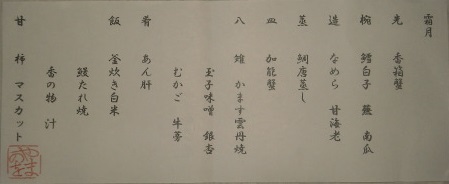 霜月
先 香箱蟹
椀 鱈白子 蕪 南瓜
造 なめら 甘海老
蒸 鯛唐蒸し
皿 加能蟹
八 雉 かます雲丹焼
玉子味噌 銀杏
むかご 牛蒡
肴 あん肝
飯 釜炊き白米
鰻たれ焼
香の物 汁
甘 柿 マスカット